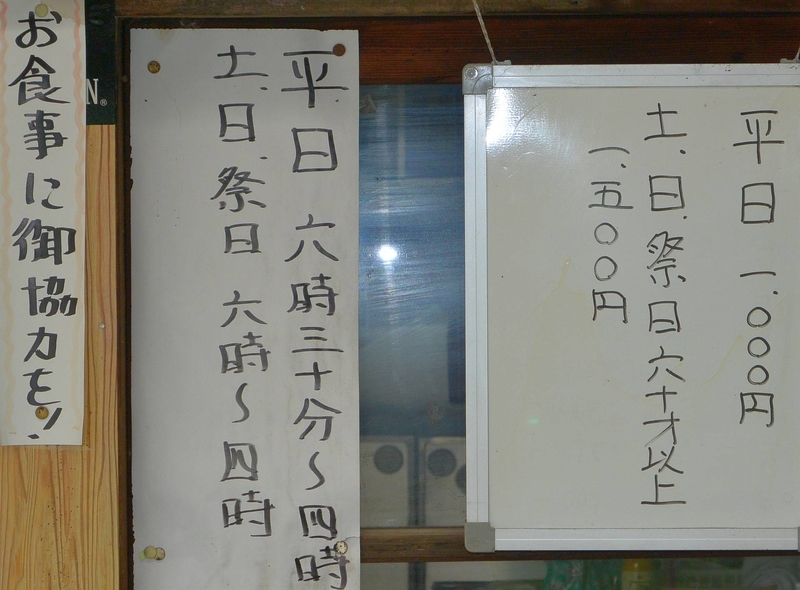 平日 一、〇〇〇円
土、日、祭日六十才以上
一、五〇〇円
平日 六時三十分～四時
土、日、祭日 六時～四時
N®
お食事に御協力を!